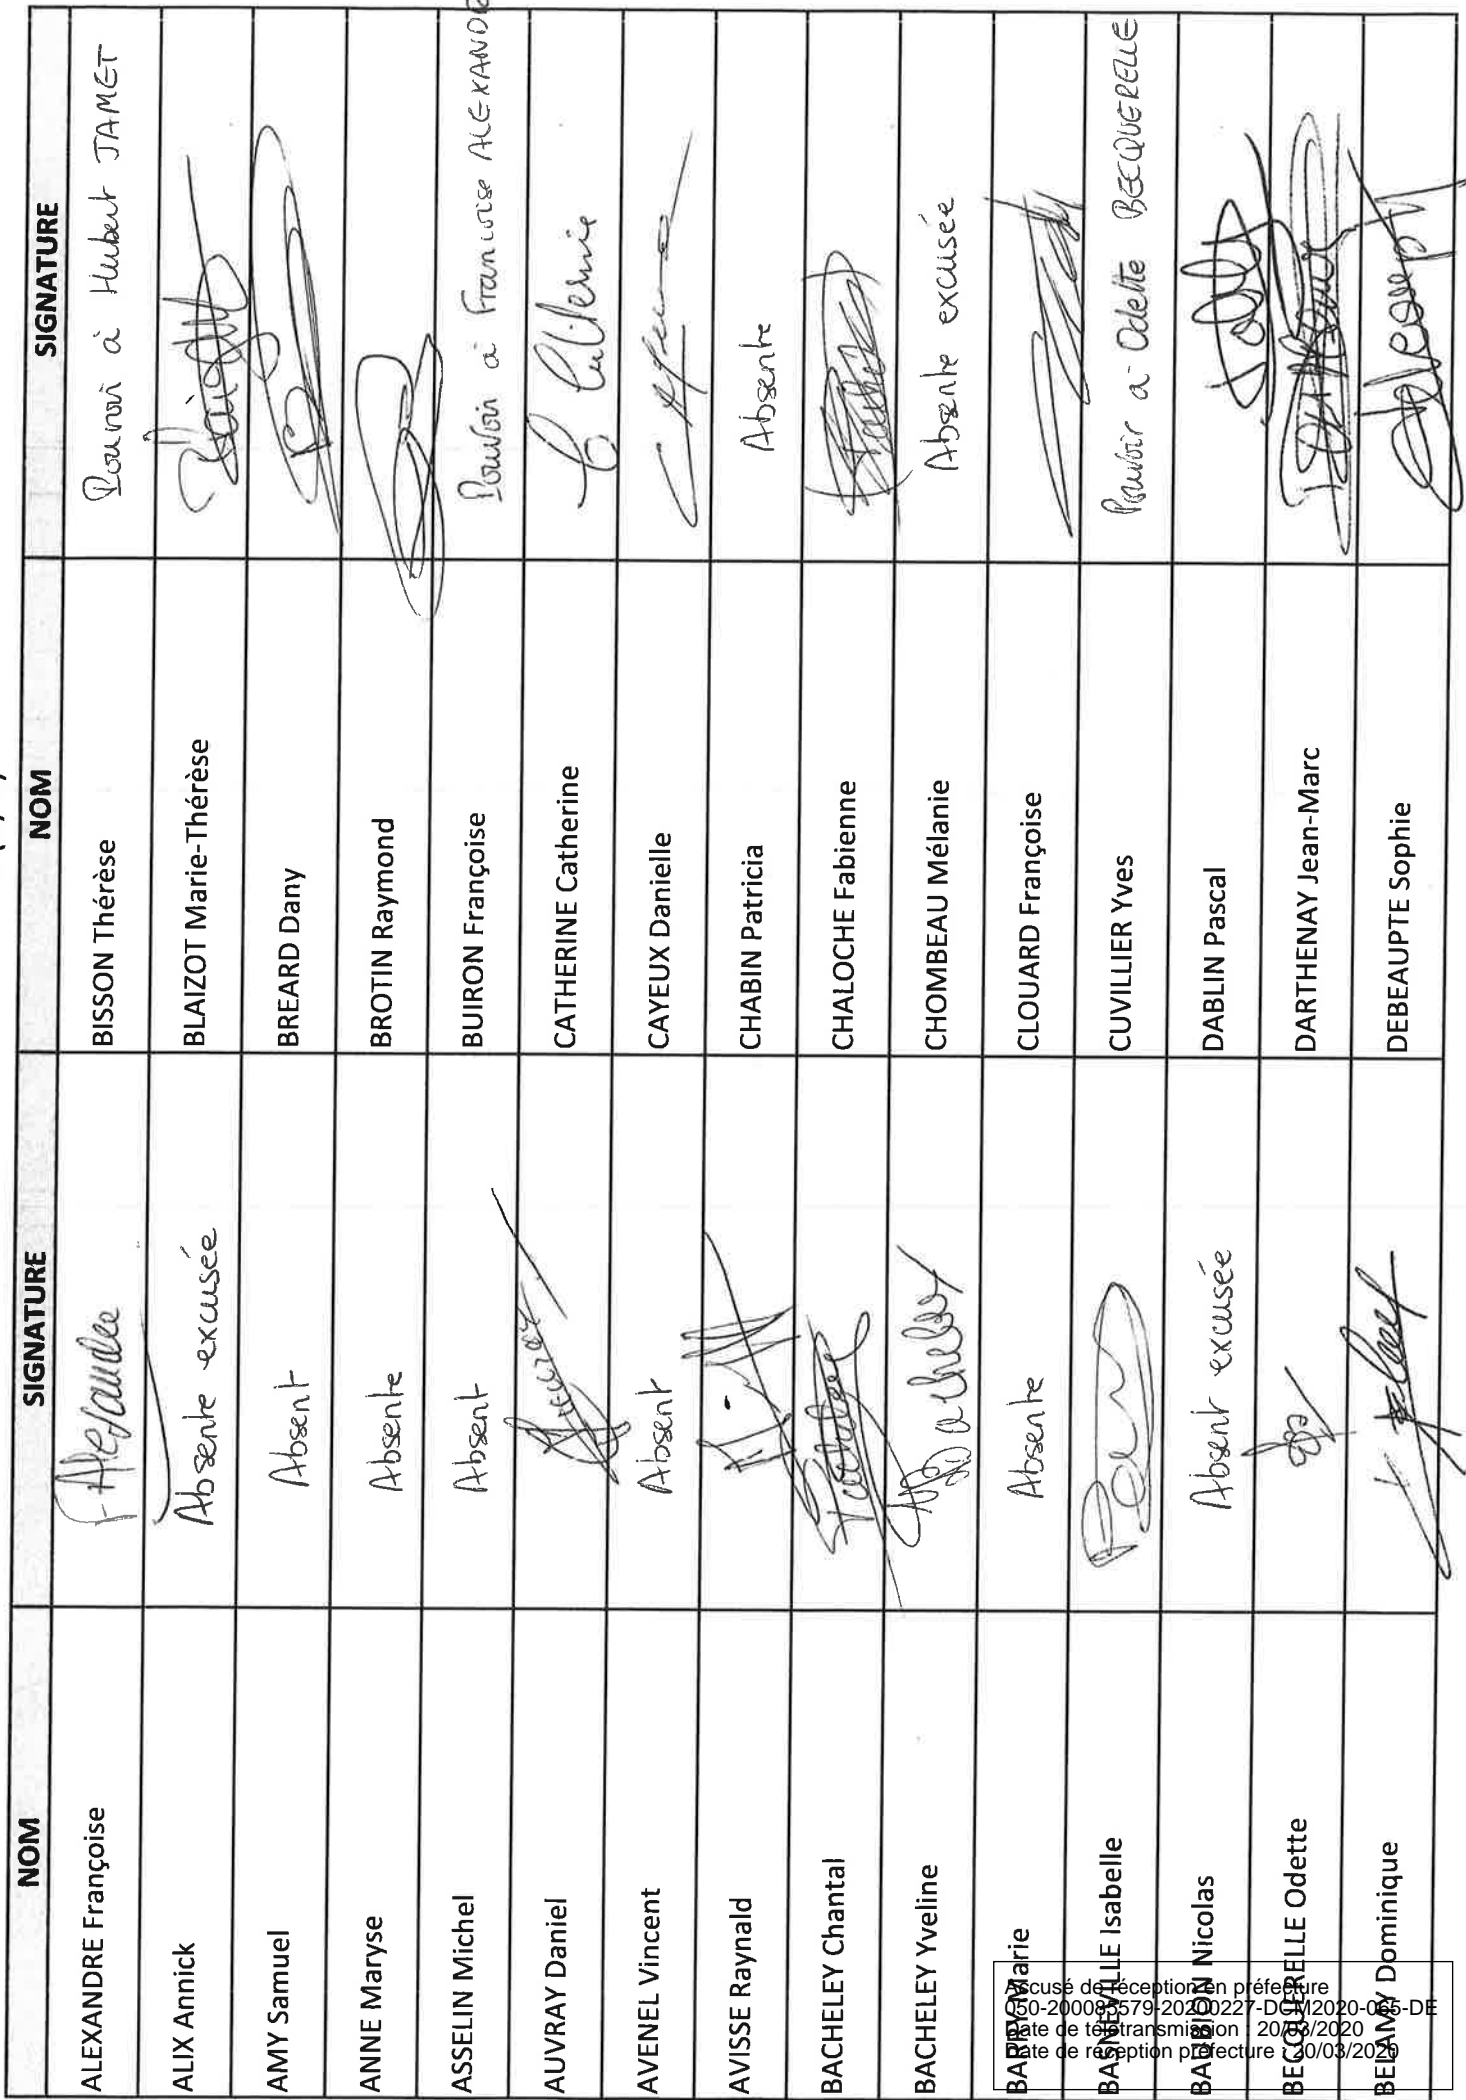 NOM SIGNATURE NOM SIGNATURE
ALEXANDRE Françoise Alexandre BISSON Thérèse Pouvoir à Hubert JAMET
ALIX Annick Absente excusée BLAIZOT Marie-Thérèse
AMY Samuel Absent BREARD Dany
ANNE Maryse Absente BROTIN Raymond
ASSELIN Michel Absent BUIRON Françoise Pouvoir à Francoise ALEXANDRE
AUVRAY Daniel CATHERINE Catherine
AVENEL Vincent Absent CAYEUX Danielle
AVISSE Raynald CHABIN Patricia Absente
BACHELEY Chantal CHALOCHE Fabienne
BACHELEY Yveline CHOMBEAU Mélanie Absente excusée
BARRY Marie Absente CLOUARD Françoise
BASNEVILLE Isabelle CUVILLIER Yves Pouvoir à Odette BECQUERELLE
BAUBION Nicolas Absent excusée DABLIN Pascal
BECQUERELLE Odette DARTHENAY Jean-Marc
BELAMY Dominique DEBEAUPTE Sophie
Accusé de réception en préfecture
050-200085579-20200227-DCM2020-065-DE
Date de télétransmission : 20/03/2020
Date de réception préfecture : 20/03/2020